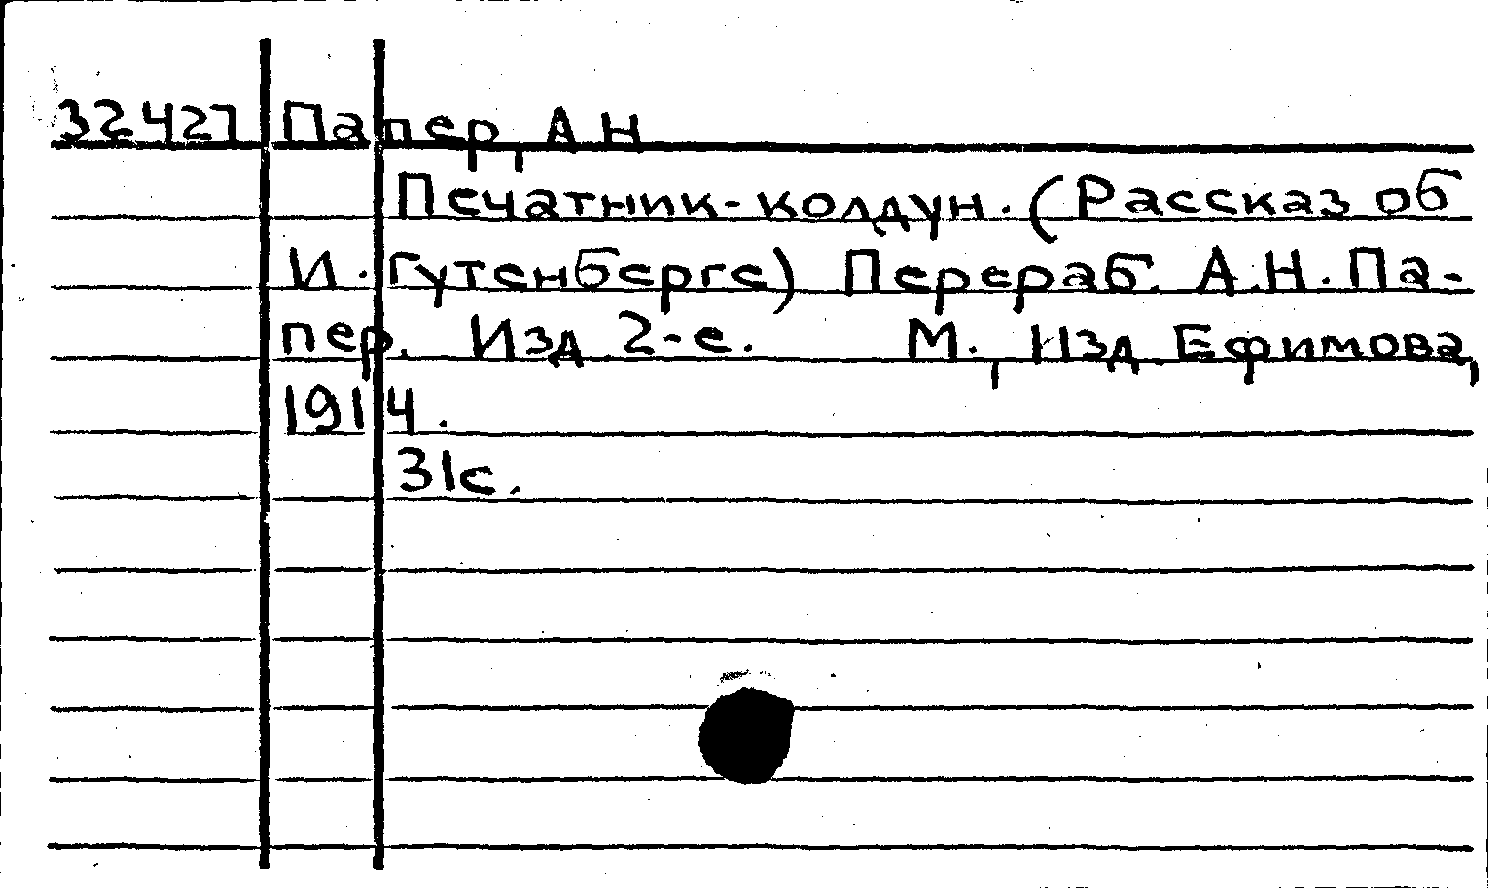 32427 Папер, А Н
Печатник-колдун. (Рассказ об
И. Гутенберге) Перераб. А.Н. Па-
пер. Изд. 2-е. М., Изд. Ефимова,
1914.
31с.